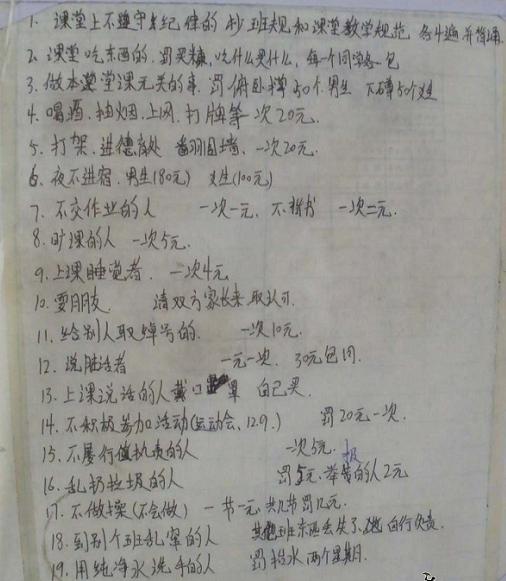 1. 课堂上不遵守纪律的 抄班规和课堂教学规范 各4遍 并背诵
2. 课堂吃东西的. 罚买糖, 吃什么买什么, 每个同学各一包
3. 做本堂课无关的事. 罚俯卧撑50个男生 下蹲50个女生
4. 喝酒. 抽烟. 上网. 打牌等一次20元.
5. 打架. 进德育处 翻围墙. 一次20元.
6. 夜不进宿. 男生(180元) 女生(100元)
7. 不交作业的人 一次一元. 不带书 一次二元.
8. 旷课的人 一次5元.
9. 上课睡觉者. 一次4元
10. 耍朋友. 请双方家长来取认可.
11. 给别人取绰号的. 一次10元.
12. 说脏话者 一元一次. 30元包月.
13. 上课说话的人戴口罩 自己买.
14. 不积极参加活动(运动会、12.9.) 罚20元一次.
15. 不履行值执责的人 一次5元.
16. 乱扔垃圾的人 罚5元. 举报的人2元
17. 不做操(不会做) 一节一元. 共几节罚几元.
18. 到别个班乱窜的人 班东西丢失了, 自行负责.
19. 用纯净水洗手的人 罚抬水两个星期.